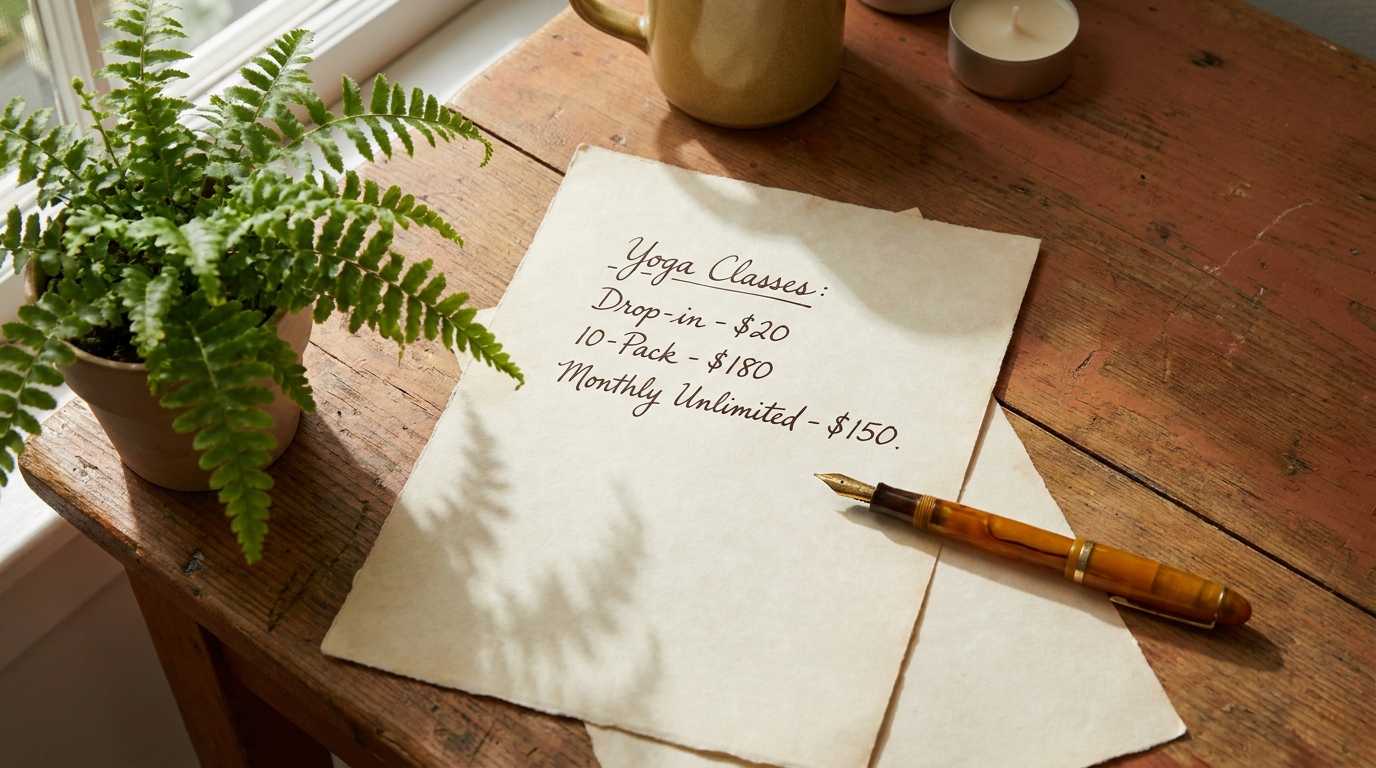 Yoga Classes:
Drop-in - $20
10-Pack - $180
Monthly Unlimited - $150.